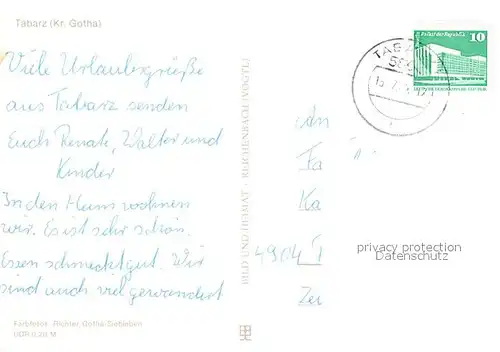 Tabarz (Kr. Gotha)
Viele Urlaubsgrüße
aus Tabarz senden
Euch Renate, Walter und
Kinder
In den Heim wohnen
wir. Es ist sehr schön.
Essen schmeckt gut. Wir
sind auch viel gewandert
Farbfotos: Richter, Gotha-Siebleben
DDR 0,20 M
BILD UND HEIMAT · REICHENBACH (VOGTL)
Palast der Republik
10
TABARZ
An
Fa
Ka
4904 T
Zei
privacy protection
Datenschutz